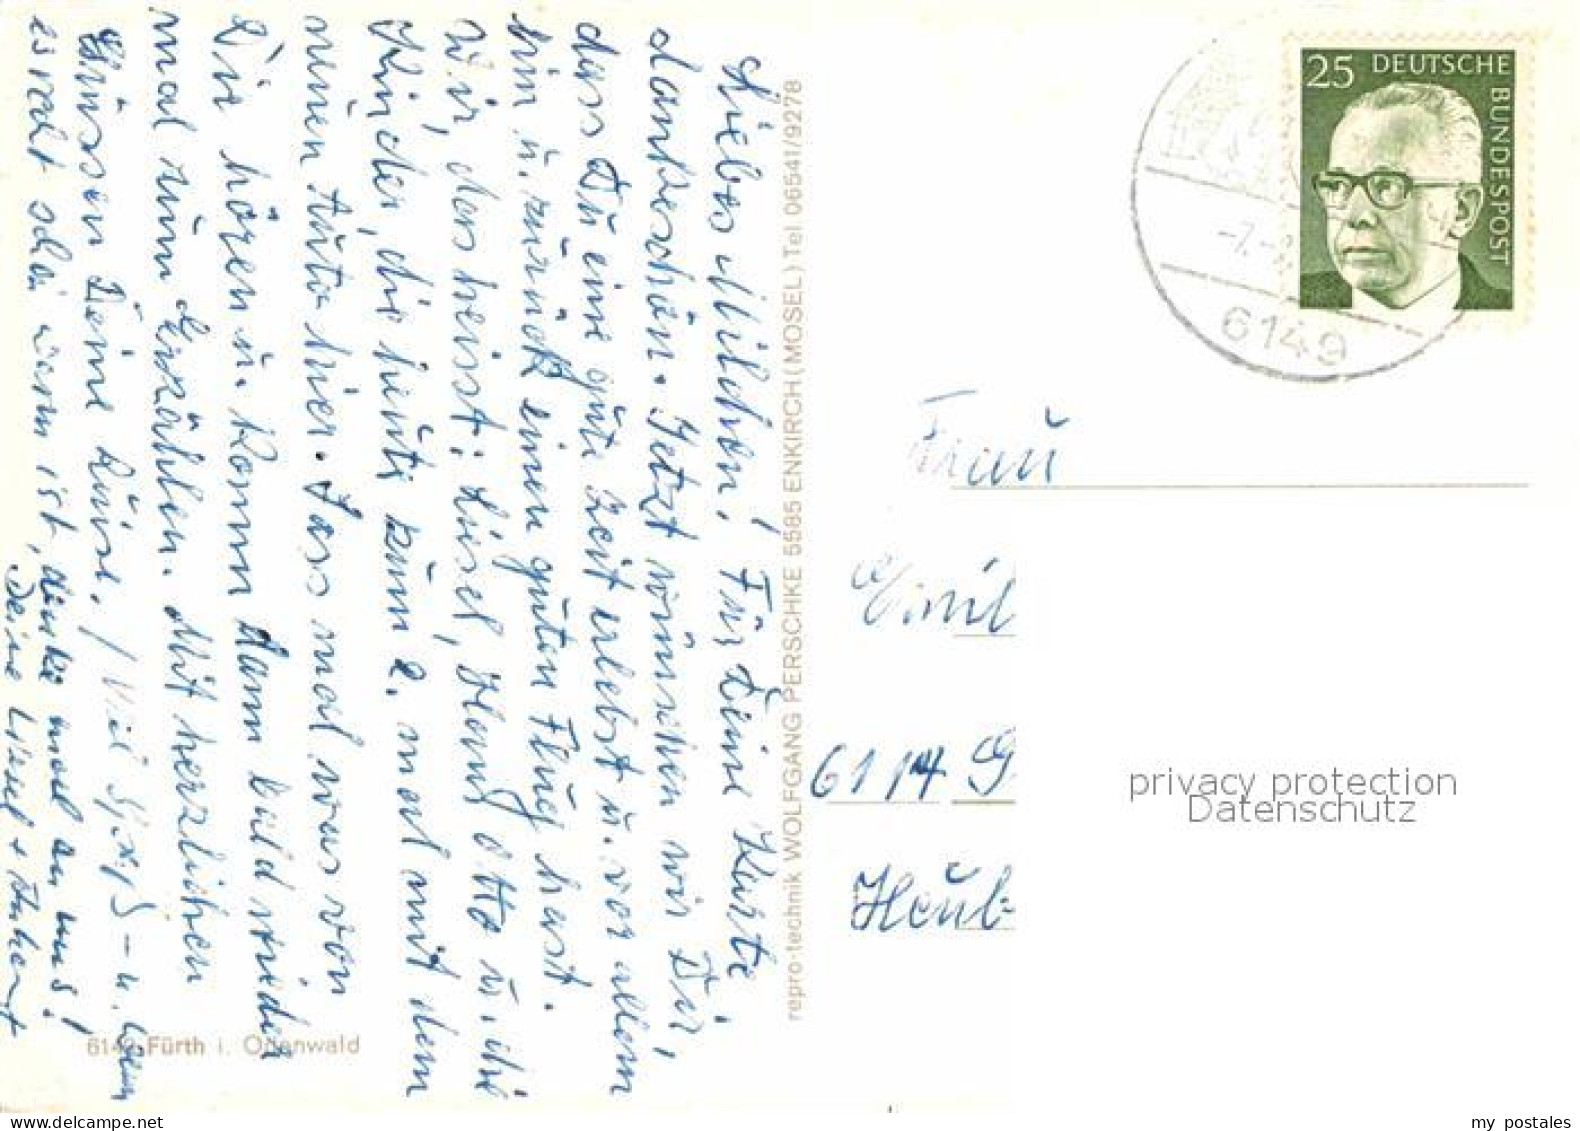 Liebes Milchen! Für Deine Karte,
dankeschön. Jetzt wünschen wir Dir,
dass Du eine gute Zeit erlebst u. vor allem
hin u. zurück einen guten Flug hast.
Wir, das heisst: Liesel, Hans Otto u. die
Kinder, die heute zum 2. mal mit dem
neuen Auto hier. Lass mal was von
Dir hören u. komm dann bald wieder
mal zum Erzählen. Mit herzlichen
Grüssen Deine Luise. / Viel Spaß - u. wenn
es recht schön warm ist, denke mal an uns!
Deine Liesel +
6149 Fürth i. Odenwald
repro-technik WOLFGANG PERSCHKE 5585 ENKIRCH (MOSEL) Tel 06541/9278
25 DEUTSCHE
BUNDESPOST
6149
Frau
Emil
6114 G
Heub-
privacy protection
Datenschutz
my postales
www.delcampe.net